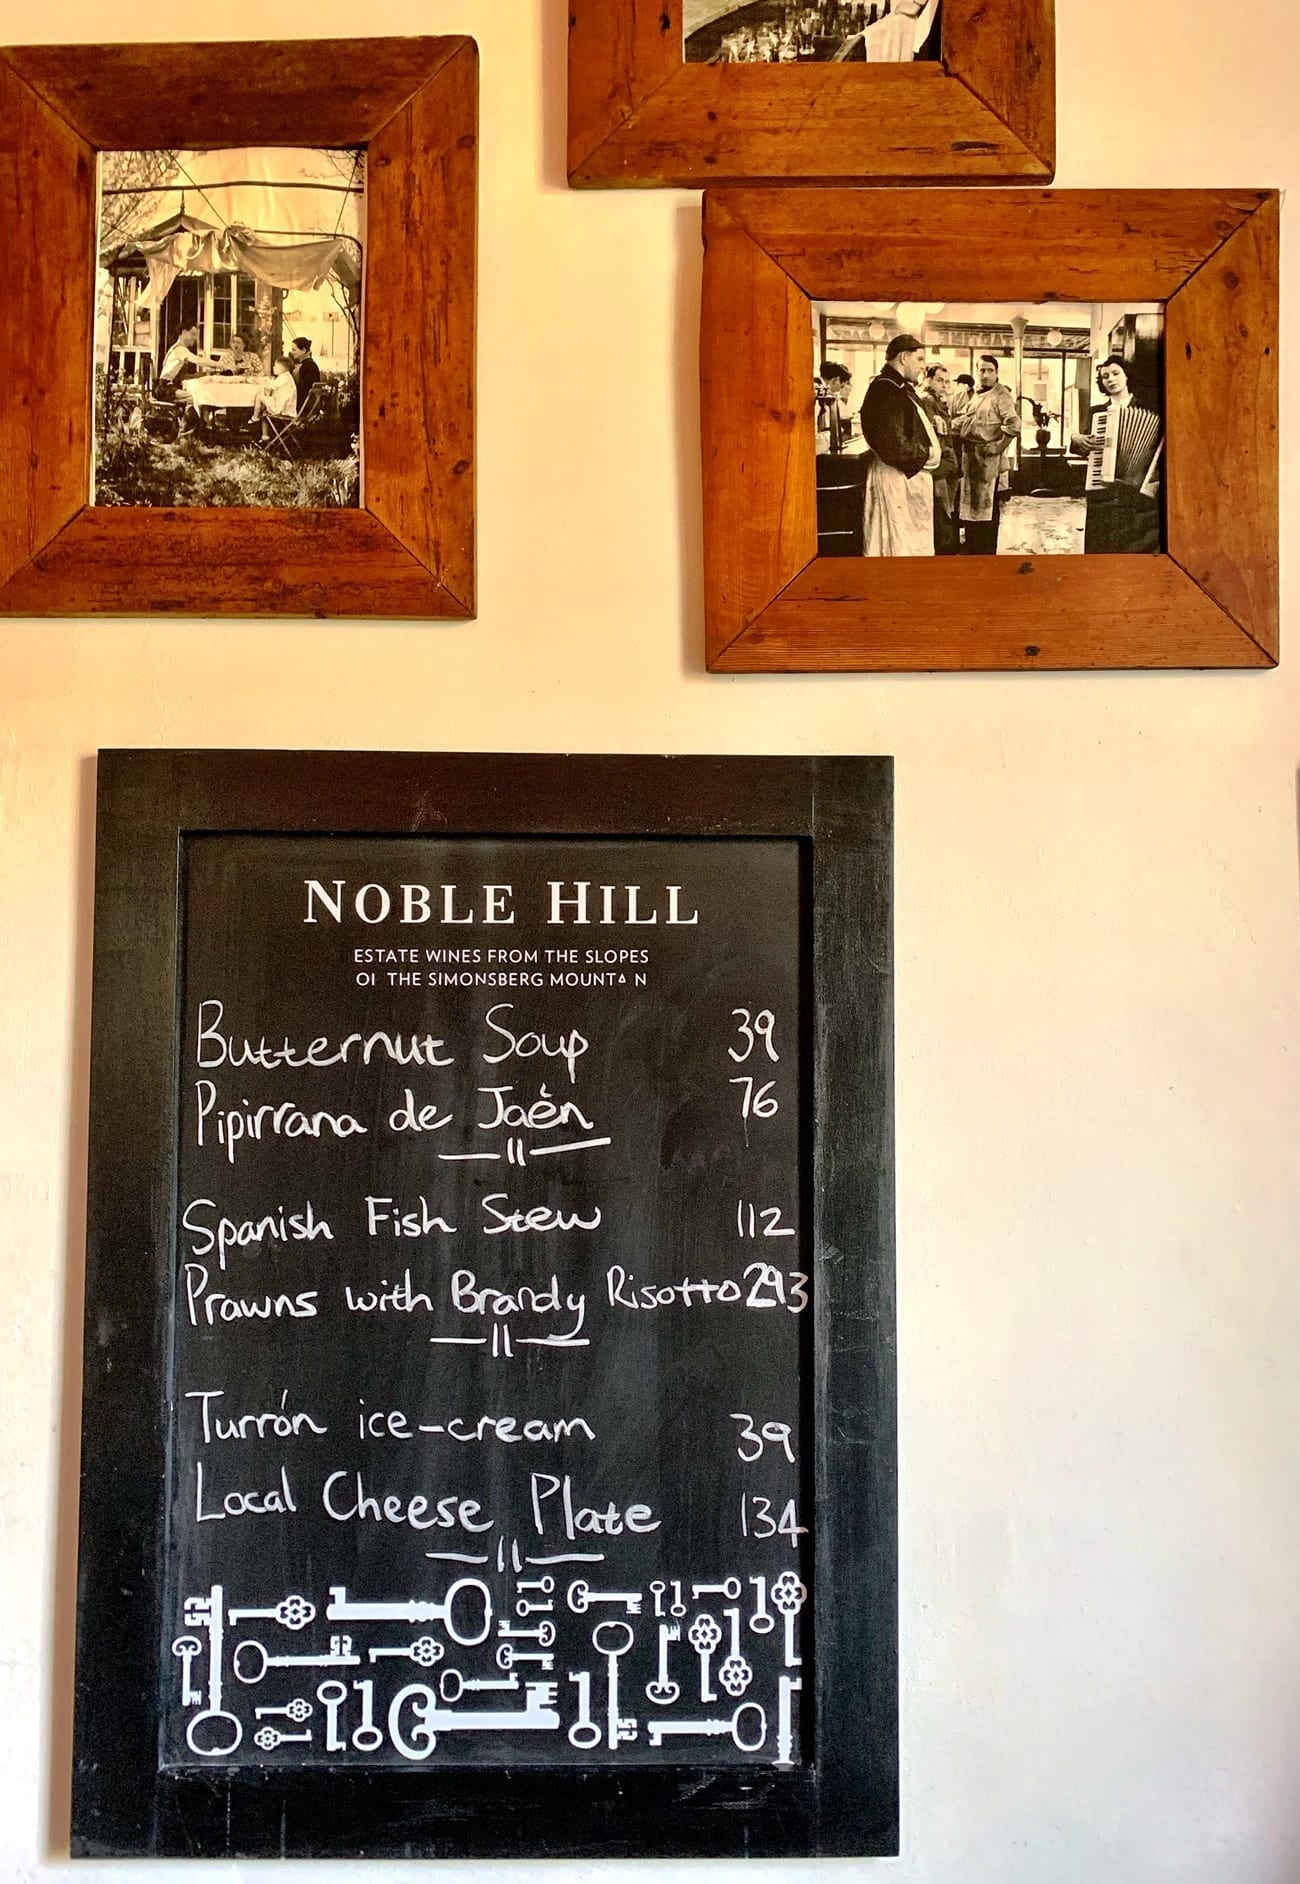 NOBLE HILL
ESTATE WINES FROM THE SLOPES
OI THE SIMONSBERG MOUNT N
Butternut Soup 39
Pipirrana de Jaén 76
Spanish Fish Stew 112
Prawns with Brandy Risotto 293
Turrón ice-cream 39
Local Cheese Plate 134